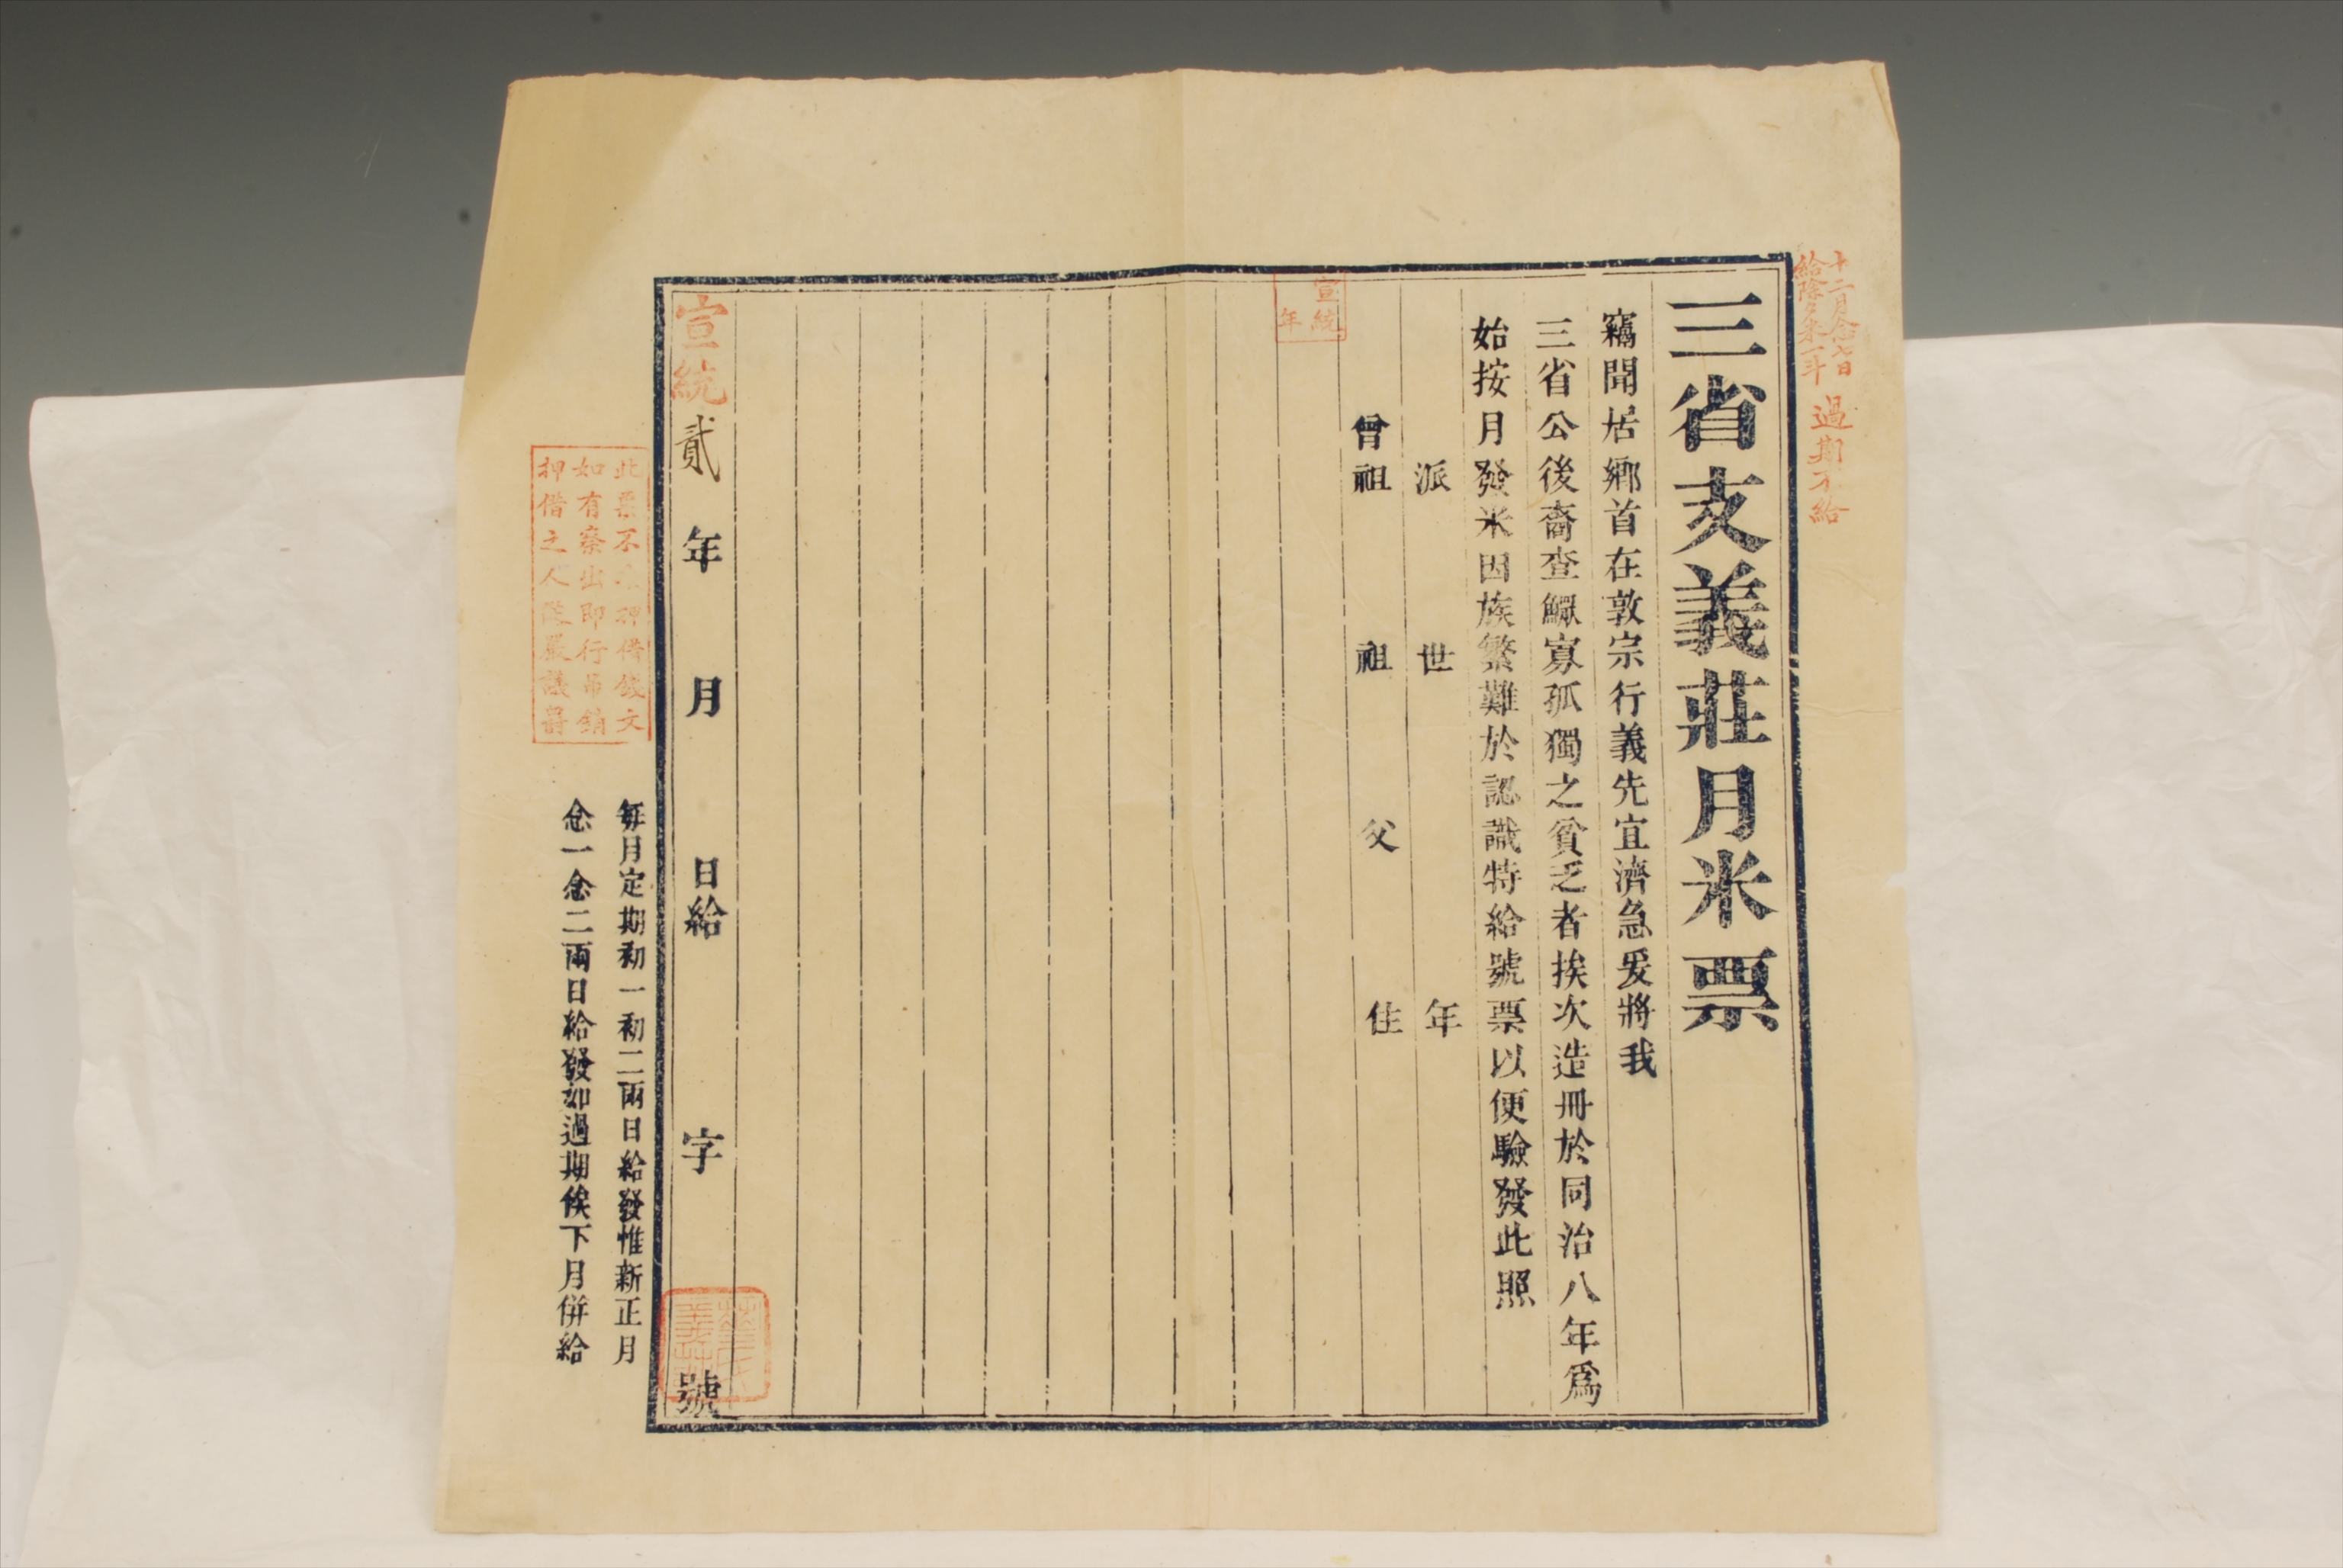 十二月念七日
給除夕米一斗
過期不給
三省支義莊月米票
竊聞居鄉首在敦宗行義先宜濟急爰將我
三省公後裔查鰥寡孤獨之貧乏者挨次造冊於同治八年爲
始按月發米因族繁難於認識特給號票以便驗發此照
派 世 年
曾祖 祖 父 住
宣統
年
宣統貳年 月 日給 字 號
此票不 押借錢文
如有察出即行吊銷
押借之人 嚴議罰
每月定期初一初二兩日給發惟新正月
念一念二兩日給發如過期俟下月併給